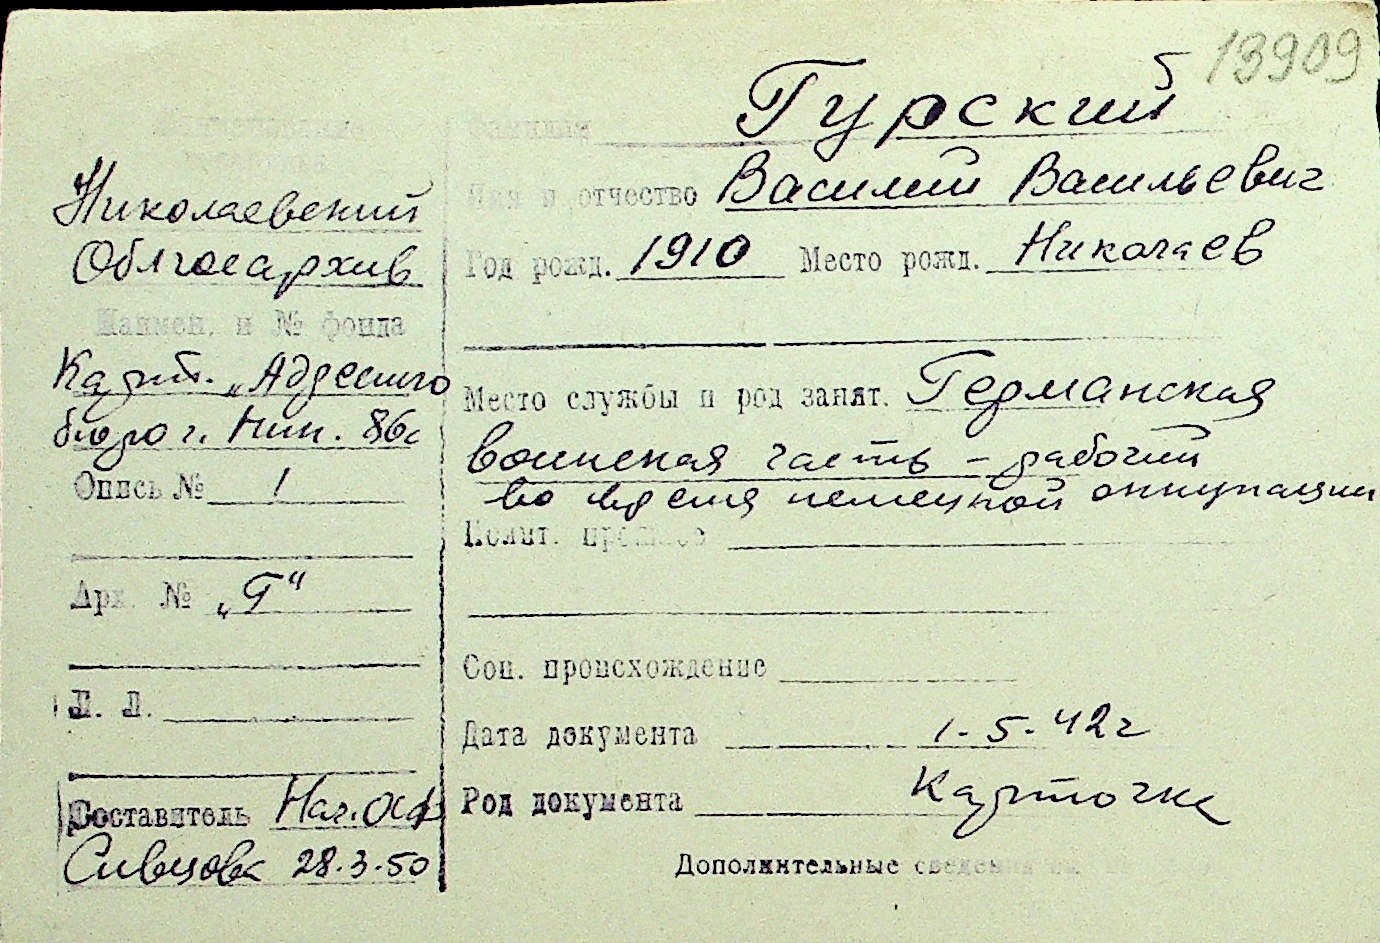 13909
Наименование
Николаевский
Облгосархив
Наимен. и № фонда
Карт. „Адресного
бюро г. Ник. 86с
Опись № 1
Арх. № „Г“
Л. Л.
Составитель Нач. ОСФ
Сивцова 28.3.50
Фамилия Гурский
Имя и отчество Василий Васильевич
Год рожд. 1910 Место рожд. Николаев
Место службы и род занят. Германская
воинская часть – рабочий
во время немецкой оккупации
Полит. прошлое
Соц. происхождение
Дата документа 1.5.42г
Род документа Карточка
Дополнительные сведения